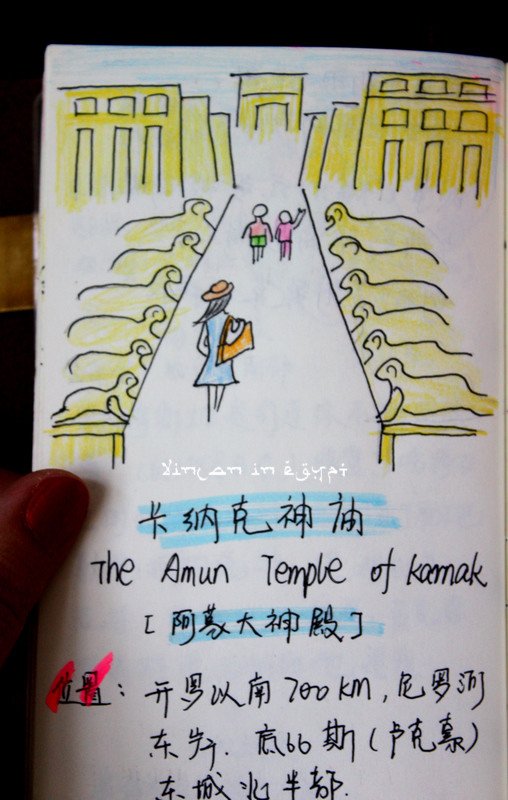 in egypt
卡纳克神庙
The Amun Temple of Karnak
[阿蒙大神殿]
位置：开罗以南700KM，尼罗河
东岸．底比斯（卢克索）
东城北半部．